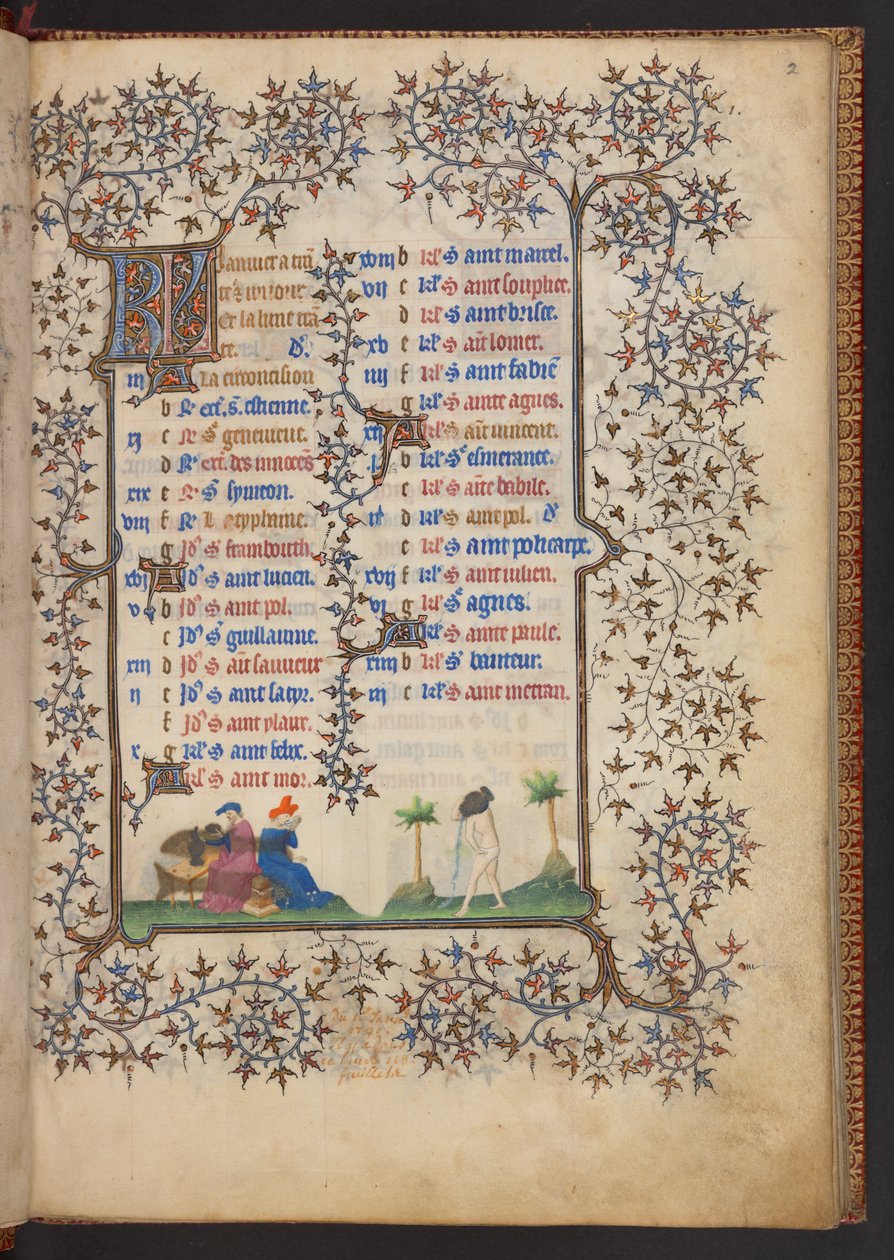 2
KL Januier a .xxx.
Et la lune
iij A La circoncision
b N ext. s. estienne.
xj c N S geneuieue.
d N ext. des innocēs
xix e N S symeon.
viij f N L epyphanie.
g Jd9 S
xvj A Jd9 S aint lucien.
v b Jd9 S aint pol.
c Jd9 S guillaume.
xiij d Jd9 S aīt sauueur
ij e Jd9 S aint satyr.
f Jd9 S aint ylaire.
x g kl S aint felix.
A kl S aint mor.
xviij b kl S aint marcel.
vij c kl S aint souplice.
d kl S aint brisce.
xv e kl S aīt lomer.
iiij f kl S aint fabiē
g kl S ainte agnes.
xij A kl S aīt uincent.
j b kl S esmerance.
c kl S aīte babile.
ix d kl S aint pol. D
e kl S aint policarpe.
xvij f kl S aint iulien.
vj g kl S agnes.
A kl S ainte paule.
xiiij b kl S bauteur.
iij c kl S aint metran.